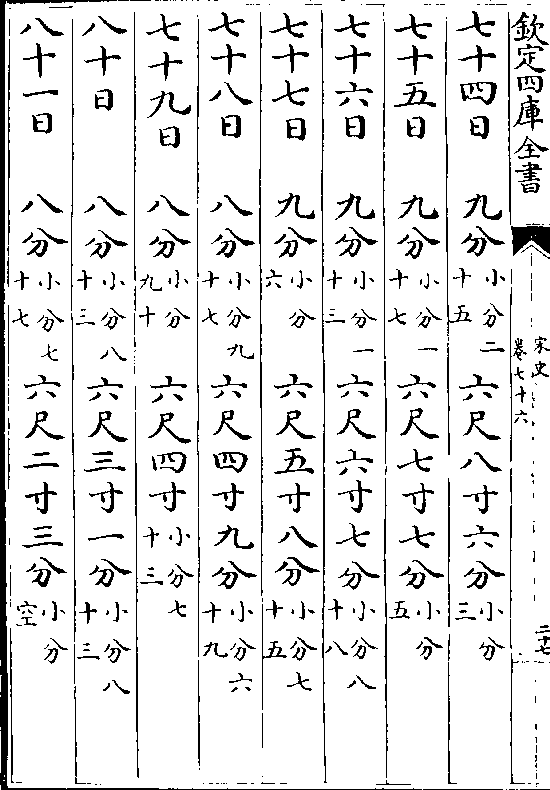 欽定四庫全書
宋史
卷七十六
二十七
七十四日 九分小分二十五 六尺八寸六分小分三
七十五日 九分小分一十七 六尺七寸七分小分五
七十六日 九分小分一十三 六尺六寸七分小分八十八
七十七日 九分小分六 六尺五寸八分小分七十五
七十八日 八分小分九十七 六尺四寸九分小分六十九
七十九日 八分小分九十 六尺四寸小分七十三
八十日 八分小分八十三 六尺三寸一分小分八十三
八十一日 八分小分七十七 六尺二寸三分小分空